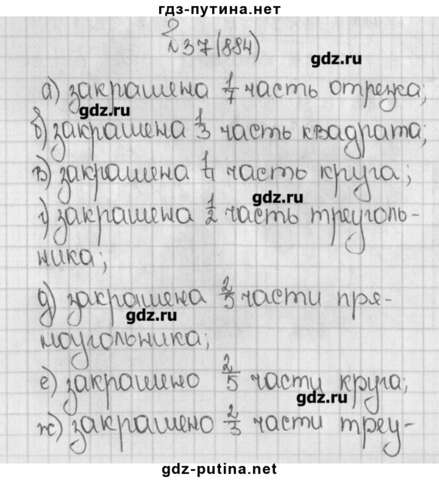 гдз-путина.нет
№ 37 (884)
gdz.ru
а) закрашена 1/7 часть отрезка;
gdz.ru
б) закрашена 1/3 часть квадрата;
в) закрашена 1/4 часть круга;
gdz.ru
г) закрашена 1/2 часть треуголь-
ника;
д) закрашена 2/5 части пря-
gdz.ru
моугольника;
е) закрашено 2/5 части круга;
gdz.ru
ж) закрашено 2/3 части треу-
gdz-putina.net